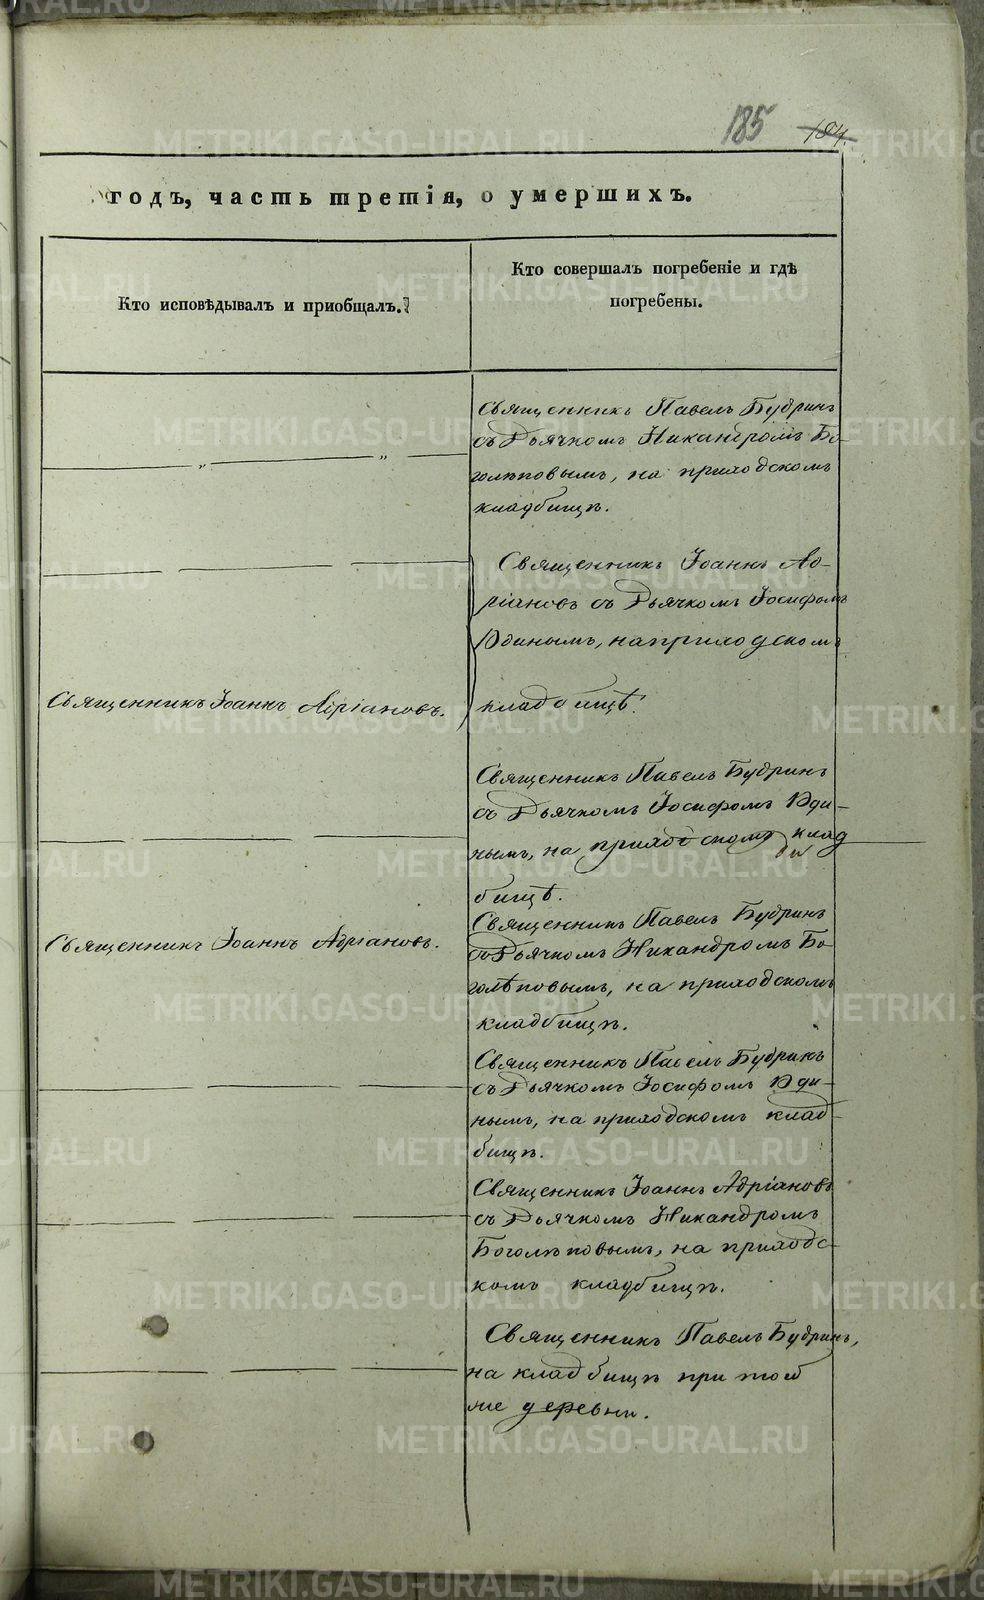 185 184
годъ, часть третія, о умершихъ.
Кто исповѣдывалъ и приобщалъ.
Кто совершалъ погребеніе и гдѣ
погребены.
Священникъ Павелъ Будринъ
съ Дьячкомъ Никандромъ Бо-
голѣповымъ, на приходскомъ
кладбищѣ.
Священникъ Іоаннъ Ад-
ріановъ съ Дьячкомъ Іосифомъ
Удинымъ, на приходскомъ
Священникъ Іоаннъ Адріановъ.
кладбищѣ.
Священникъ Павелъ Будринъ
съ Дьячкомъ Іосифомъ Уди-
нымъ, на приходскомъ клад
бищѣ.
Священникъ Іоаннъ Адріановъ.
Священникъ Павелъ Будринъ
съ Дьячкомъ Никандромъ Бо-
голѣповымъ, на приходскомъ
кладбищѣ.
Священникъ Павелъ Будринъ
съ Дьячкомъ Іосифомъ Уди-
нымъ, на приходскомъ клад-
бищѣ.
Священникъ Іоаннъ Адріановъ
съ Дьячкомъ Никандромъ
Боголѣповымъ, на приходс-
комъ кладбищѣ.
Священникъ Павелъ Будринъ,
на кладбищѣ при той
же деревни.
METRIKI.GASO-URAL.RU